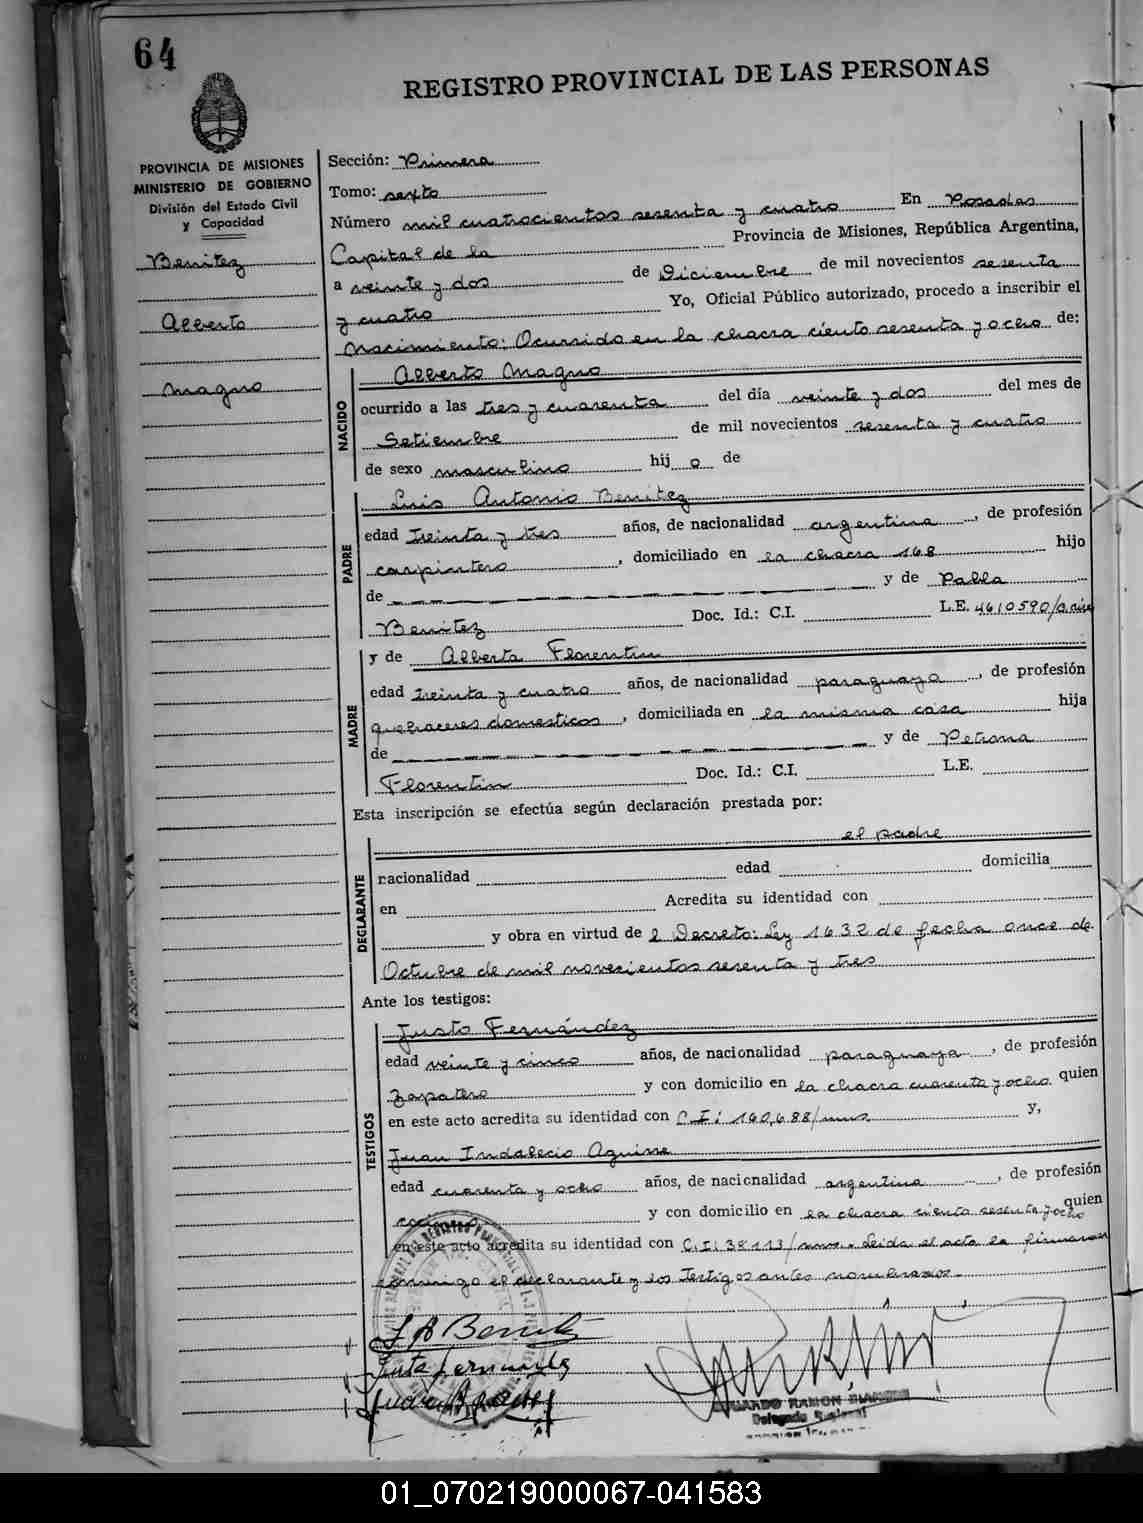 64
REGISTRO PROVINCIAL DE LAS PERSONAS
PROVINCIA DE MISIONES
MINISTERIO DE GOBIERNO
División del Estado Civil
y Capacidad
Benitez
Alberto
Magno
Sección: Primera
Tomo: sexto
Número mil cuatrocientos sesenta y cuatro En Posadas
Capital de la Provincia de Misiones, República Argentina,
a veinte y dos de Diciembre de mil novecientos sesenta
y cuatro Yo, Oficial Público autorizado, procedo a inscribir el
Nacimiento: Ocurrido en la chacra ciento sesenta y ocho de:
NACIDO
Alberto Magno
ocurrido a las tres y cuarenta del día veinte y dos del mes de
Setiembre de mil novecientos sesenta y cuatro
de sexo masculino hij o de
PADRE
Luis Antonio Benitez
edad treinta y tres años, de nacionalidad argentina, de profesión
carpintero, domiciliado en la chacra 168 hijo
de y de Pabla
Benitez Doc. Id.: C.I. L.E. 4610590/
MADRE
y de Alberta Florentin
edad treinta y cuatro años, de nacionalidad paraguaya, de profesión
quehaceres domesticos, domiciliada en la misma casa hija
de y de Petrona
Florentin Doc. Id.: C.I. L.E.
Esta inscripción se efectúa según declaración prestada por:
DECLARANTE
el padre
nacionalidad edad domicilia
en Acredita su identidad con
y obra en virtud de l Decreto: Ley 1632 de fecha once de
Octubre de mil novecientos sesenta y tres
Ante los testigos:
TESTIGOS
Justo Fernández
edad veinte y cinco años, de nacionalidad paraguaya, de profesión
zapatero y con domicilio en la chacra cuarenta y ocho quien
en este acto acredita su identidad con C.I: 160.688/mnes y,
Juan Indalecio Aguirre
edad cuarenta y ocho años, de nacionalidad argentina, de profesión
y con domicilio en la chacra ciento sesenta y ocho quien
en este acto acredita su identidad con C.I: 38113/mnes. Leida el acta la firmaron
conmigo el declarante y los Testigos antes nombrados.
L A Benitez
EDUARDO RAMON
Delegado
01_070219000067-041583